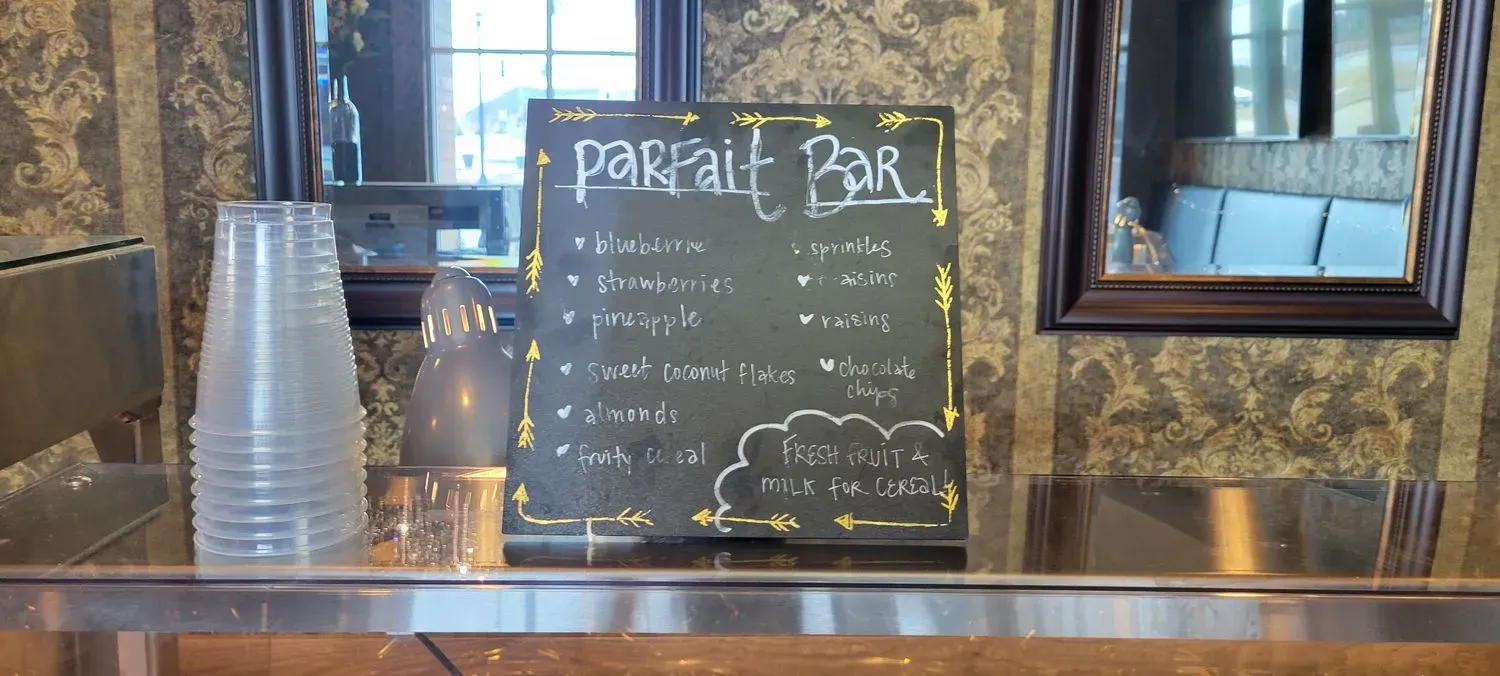 PARFait BAR
blueberrie
strawberries
pineapple
sweet coconut flakes
almonds
fruity cereal
sprinkles
raisins
raisins
chocolate
chips
FRESH FRUIT &
MILK FOR CEREAL